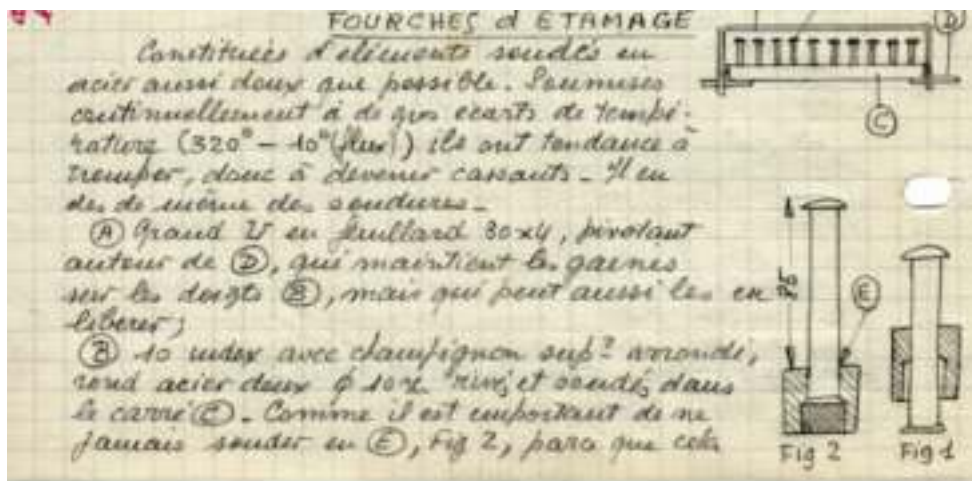 FOURCHES d'ETAMAGE
Constituées d'éléments soudés en
acier aussi doux que possible. Soumises
continuellement à de gros écarts de tempé-
rature (320° - 10° (flux)) ils ont tendance à
tremper, donc à devenir cassants - Il en
des de même des soudures -
(A) Grand U en feuillard 30x4, pivotant
autour de (D), qui maintient les gaines
sur les doigts (B), mais qui peut aussi les en
libérer;
(B) 10 index avec champignon supr arrondi,
rond acier doux ϕ 10 rivé et soudé, dans
le carré (C) - Comme il est important de ne
jamais souder en (E), Fig 2, parce que cela
D
C
E
Fig 2
Fig 1